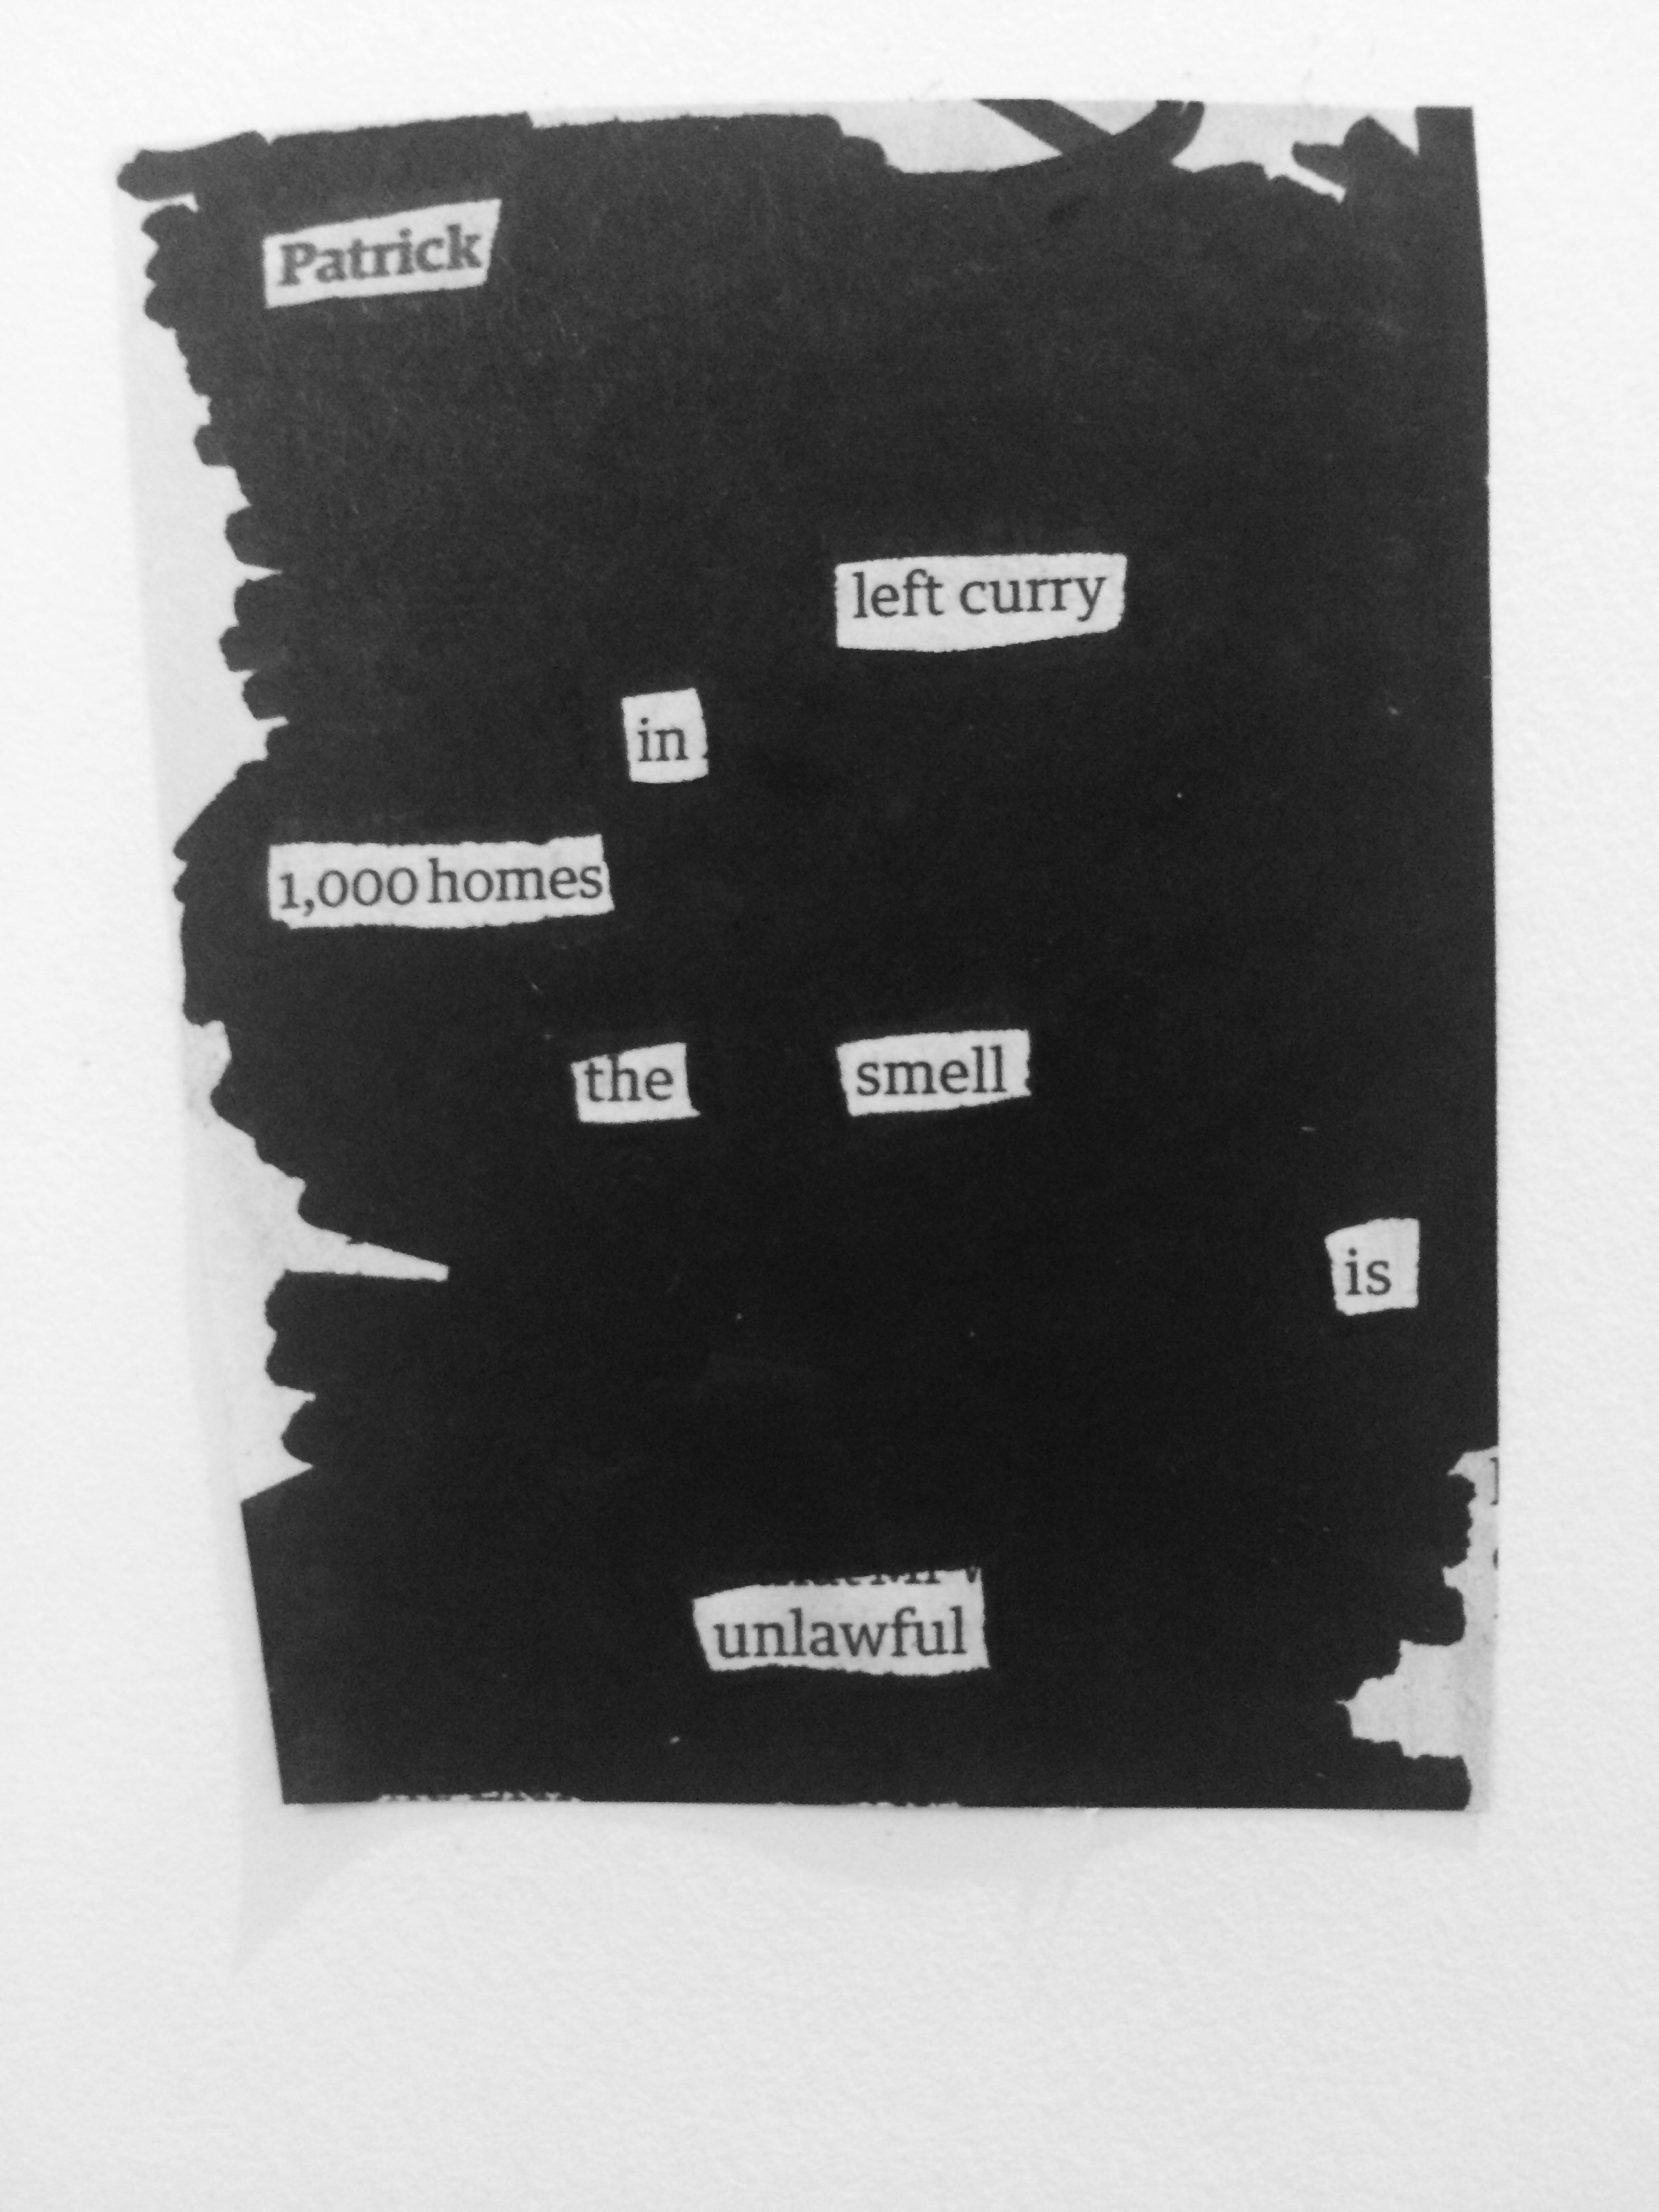 Patrick
left curry
in
1,000 homes
the smell
is
unlawful